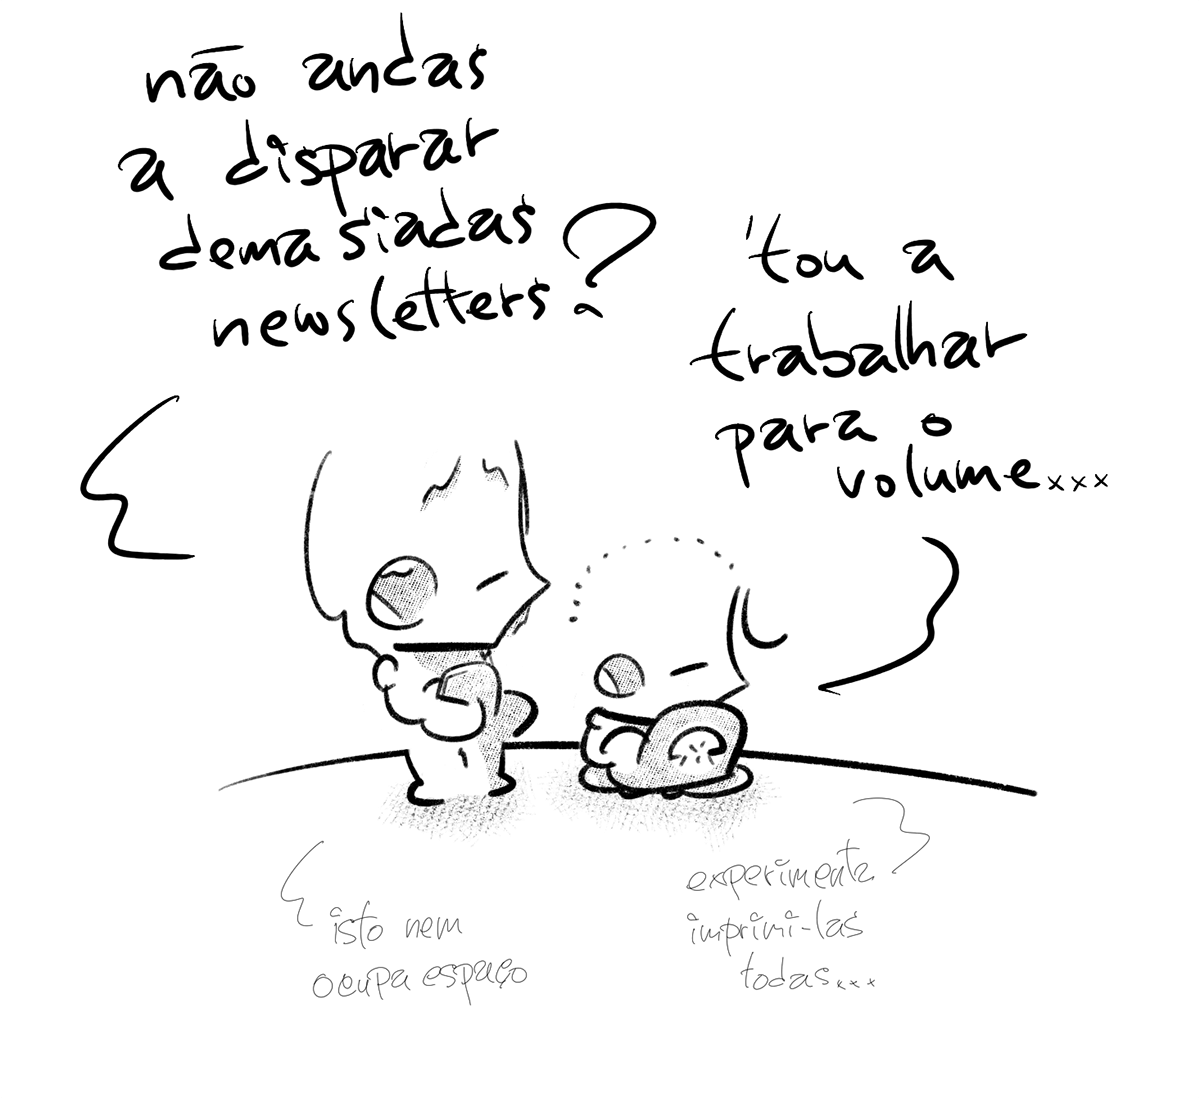 não andas
a disparar
demasiadas
newsletters?
'tou a
trabalhar
para o
volume...
isto nem
ocupa espaço
experimenta
imprimi-las
todas...